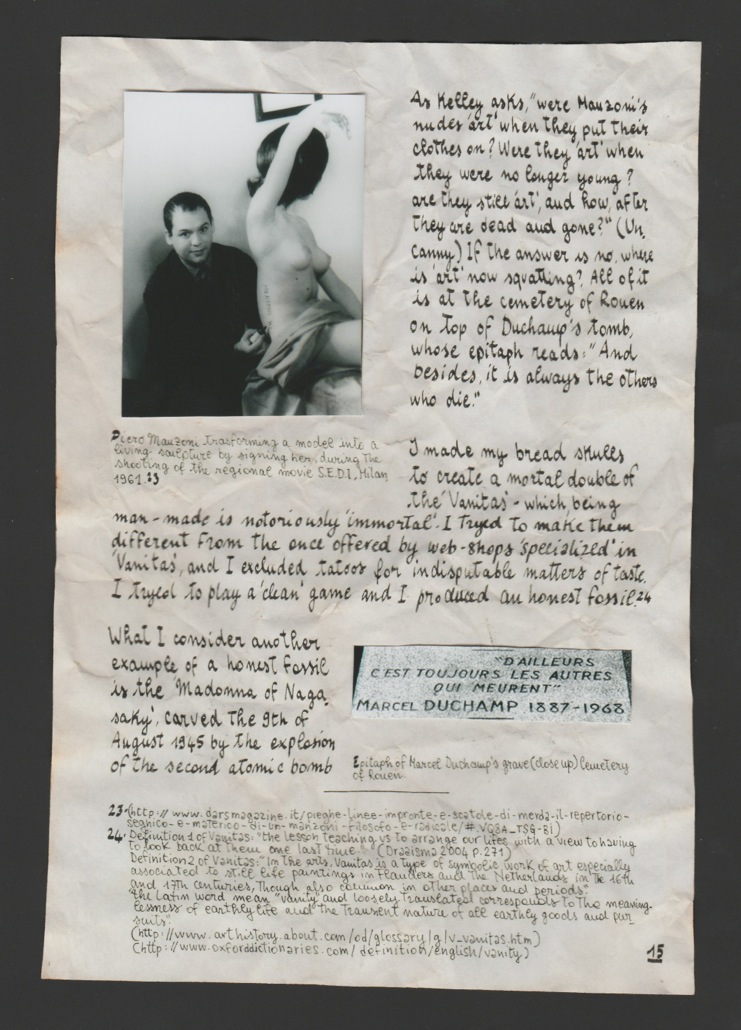 As Kelley asks, "were Manzoni's
nudes 'art' when they put their
clothes on? Were they 'art' when
they were no longer young?
are they still 'art', and how, after
they are dead and gone?" (Un
canny) If the answer is no, where
is 'art' now squatting? All of it
is at the cemetery of Rouen
on top of Duchamp's tomb,
whose epitaph reads: "And
besides, it is always the others
who die."
Piero Manzoni trasforming a model into a
living sculpture by signing her, during the
shooting of the regional movie S.E.D.I, Milan
1961.23
I made my bread skulls
to create a mortal double of
the 'Vanitas' - which, being
man-made is notoriously 'immortal'. I tryed to make them
different from the once offered by web-shops 'specialized' in
'Vanitas', and I excluded tatoos for indisputable matters of taste.
I tryed to play a 'clean' game and I produced an honest fossil.24
What I consider another
example of a honest fossil
is the 'Madonna of Naga
saky', carved the 9th of
August 1945 by the explosion
of the second atomic bomb
"D'AILLEURS
C'EST TOUJOURS LES AUTRES
QUI MEURENT"
MARCEL DUCHAMP 1887-1968
Epitaph of Marcel Duchamp's grave (close up) Cemetery
of Rouen.
23. (http://www.darsmagazine.it/pieghe-linee-impronte-e-scatole-di-merda-il-repertorio-
segnico-e-materico-di-un-manzoni-filosofo-e-radicale/#.VQ8A_TSG-8i)
24. Definition 1 of Vanitas: "the lesson teaching us to arrange our lives with a view to having
to look back at them one last time." (Draaisma 2004 p.271)
Definition 2 of Vanitas: "In the arts, Vanitas is a type of symbolic work of art especially
associated to still life paintings in Flanders and the Netherlands in the 16th
and 17th centuries, though also common in other places and periods"
"the Latin word mean "vanity" and loosely translated corresponds to the meaning-
lessness of earthly life and the transient nature of all earthly goods and pur
suits".
(http://www.arthistory.about.com/od/glossary/g/v_vanitas.htm)
(http://www.oxforddictionaries.com/definition/english/vanity)
15